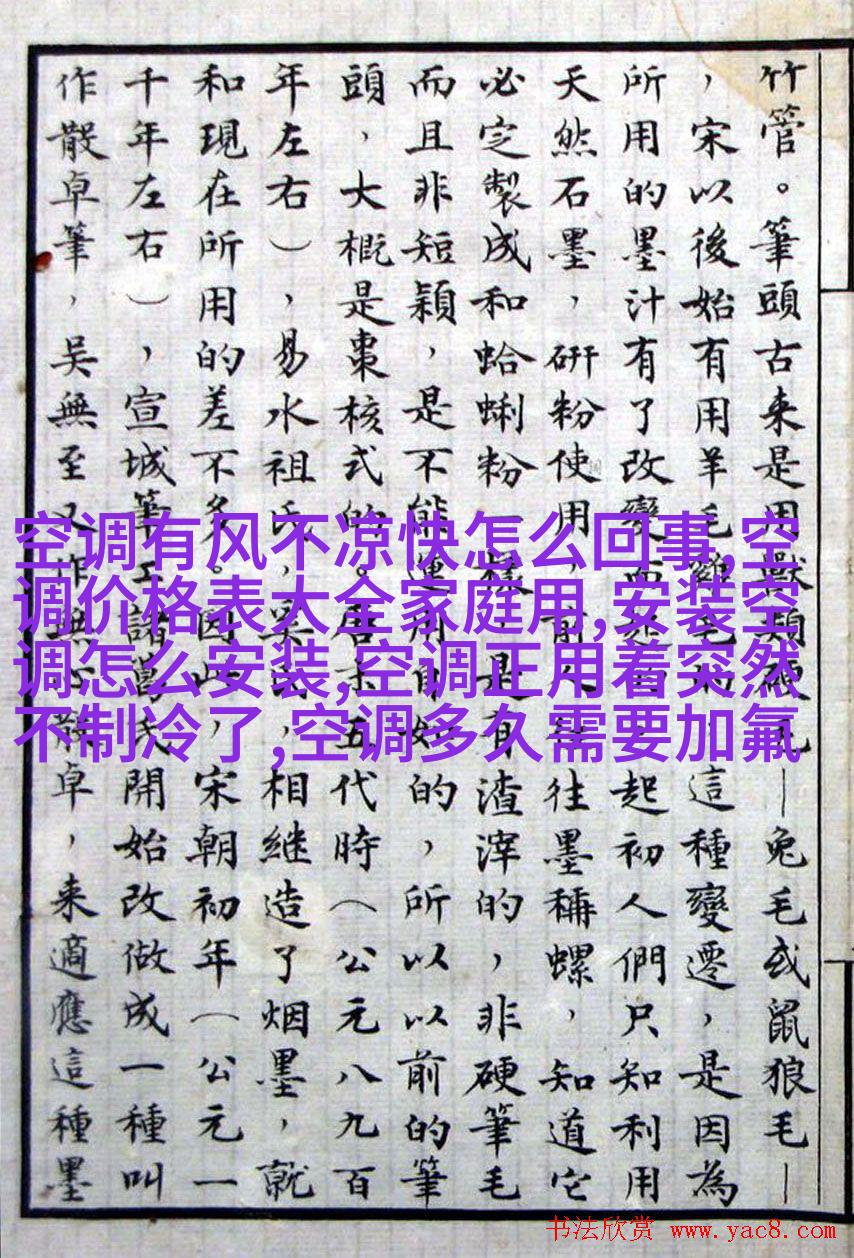 竹管。筆頭古来是用獸類硬毛—兔毛或鼠狼毛—
，宋以後始有用羊毛雞毛的這種變遷，是因為
所用的墨汁有了改變而起的起初人們只知利用
天然石墨，研粉使用，前人往往墨稱螺，知道它
必定製成和蛤蜊粉一樣，是有渣滓的，非硬筆毛
而且非短穎，是不能運用自如的，所以以前的筆
頭，大概是棗核式的。唐末五代時（公元八九百
年左右），易水祖氏，奚氏，相継造了烟墨，就
和現在所用的差不多。因此，宋朝初年（公元一
千年左右），宣城筆工諸葛氏開始改做成一種叫
作散卓筆，吳無至又作無心散卓，来適應這種墨
空调有风不凉快怎么回事,空
调价格表大全家庭用,安装空
调怎么安装,空调正用着突然
不制冷了,空调多久需要加氟
书法欣赏 www.yac8.com